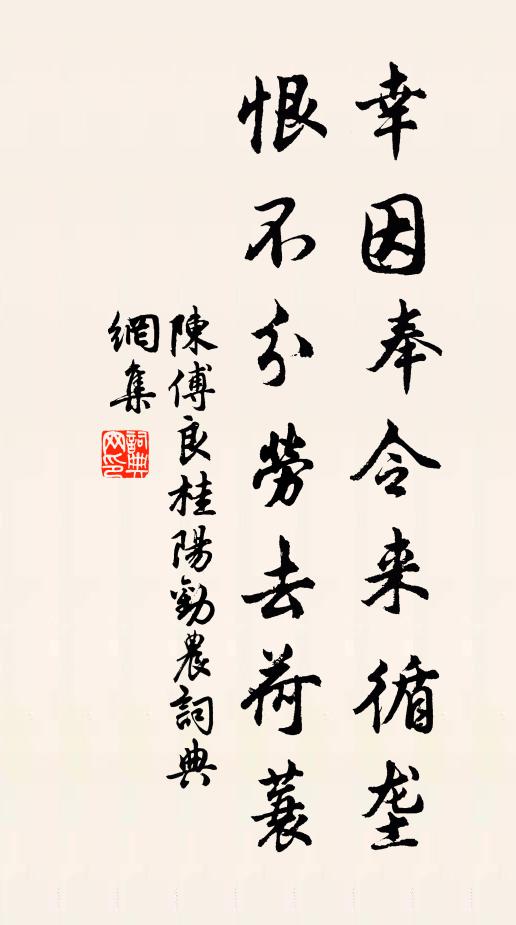 幸因奉令来循垄
恨不分劳去荷蓑
陳傅良桂陽勸農詞典
網集
詞典網印